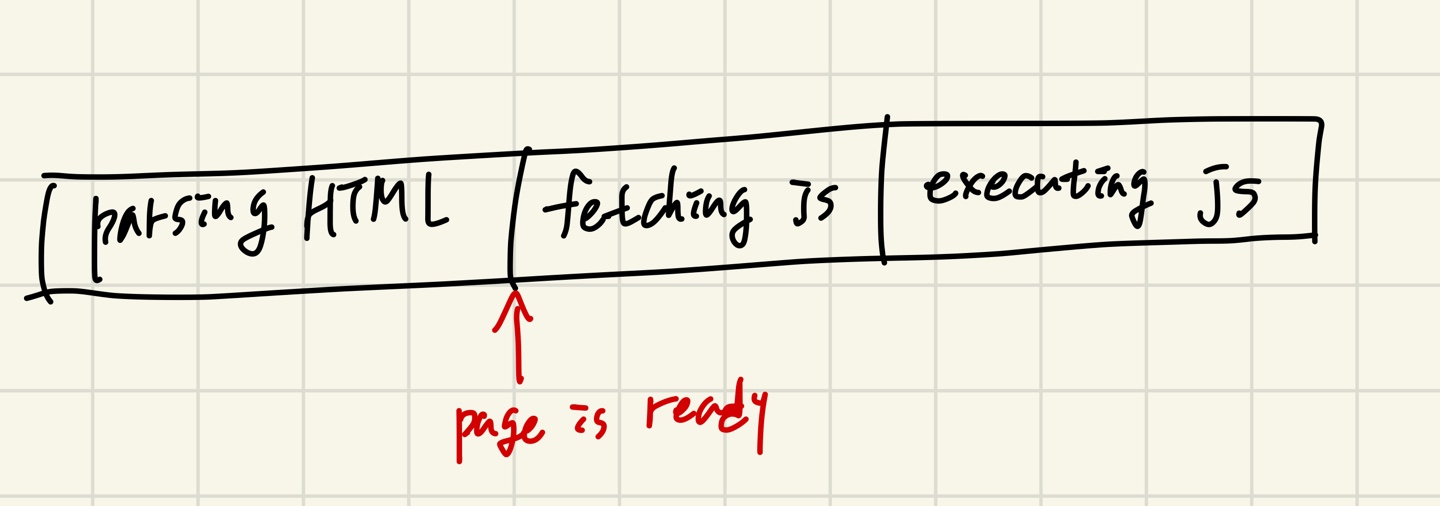 parsing HTML
fetching js
executing js
page is ready